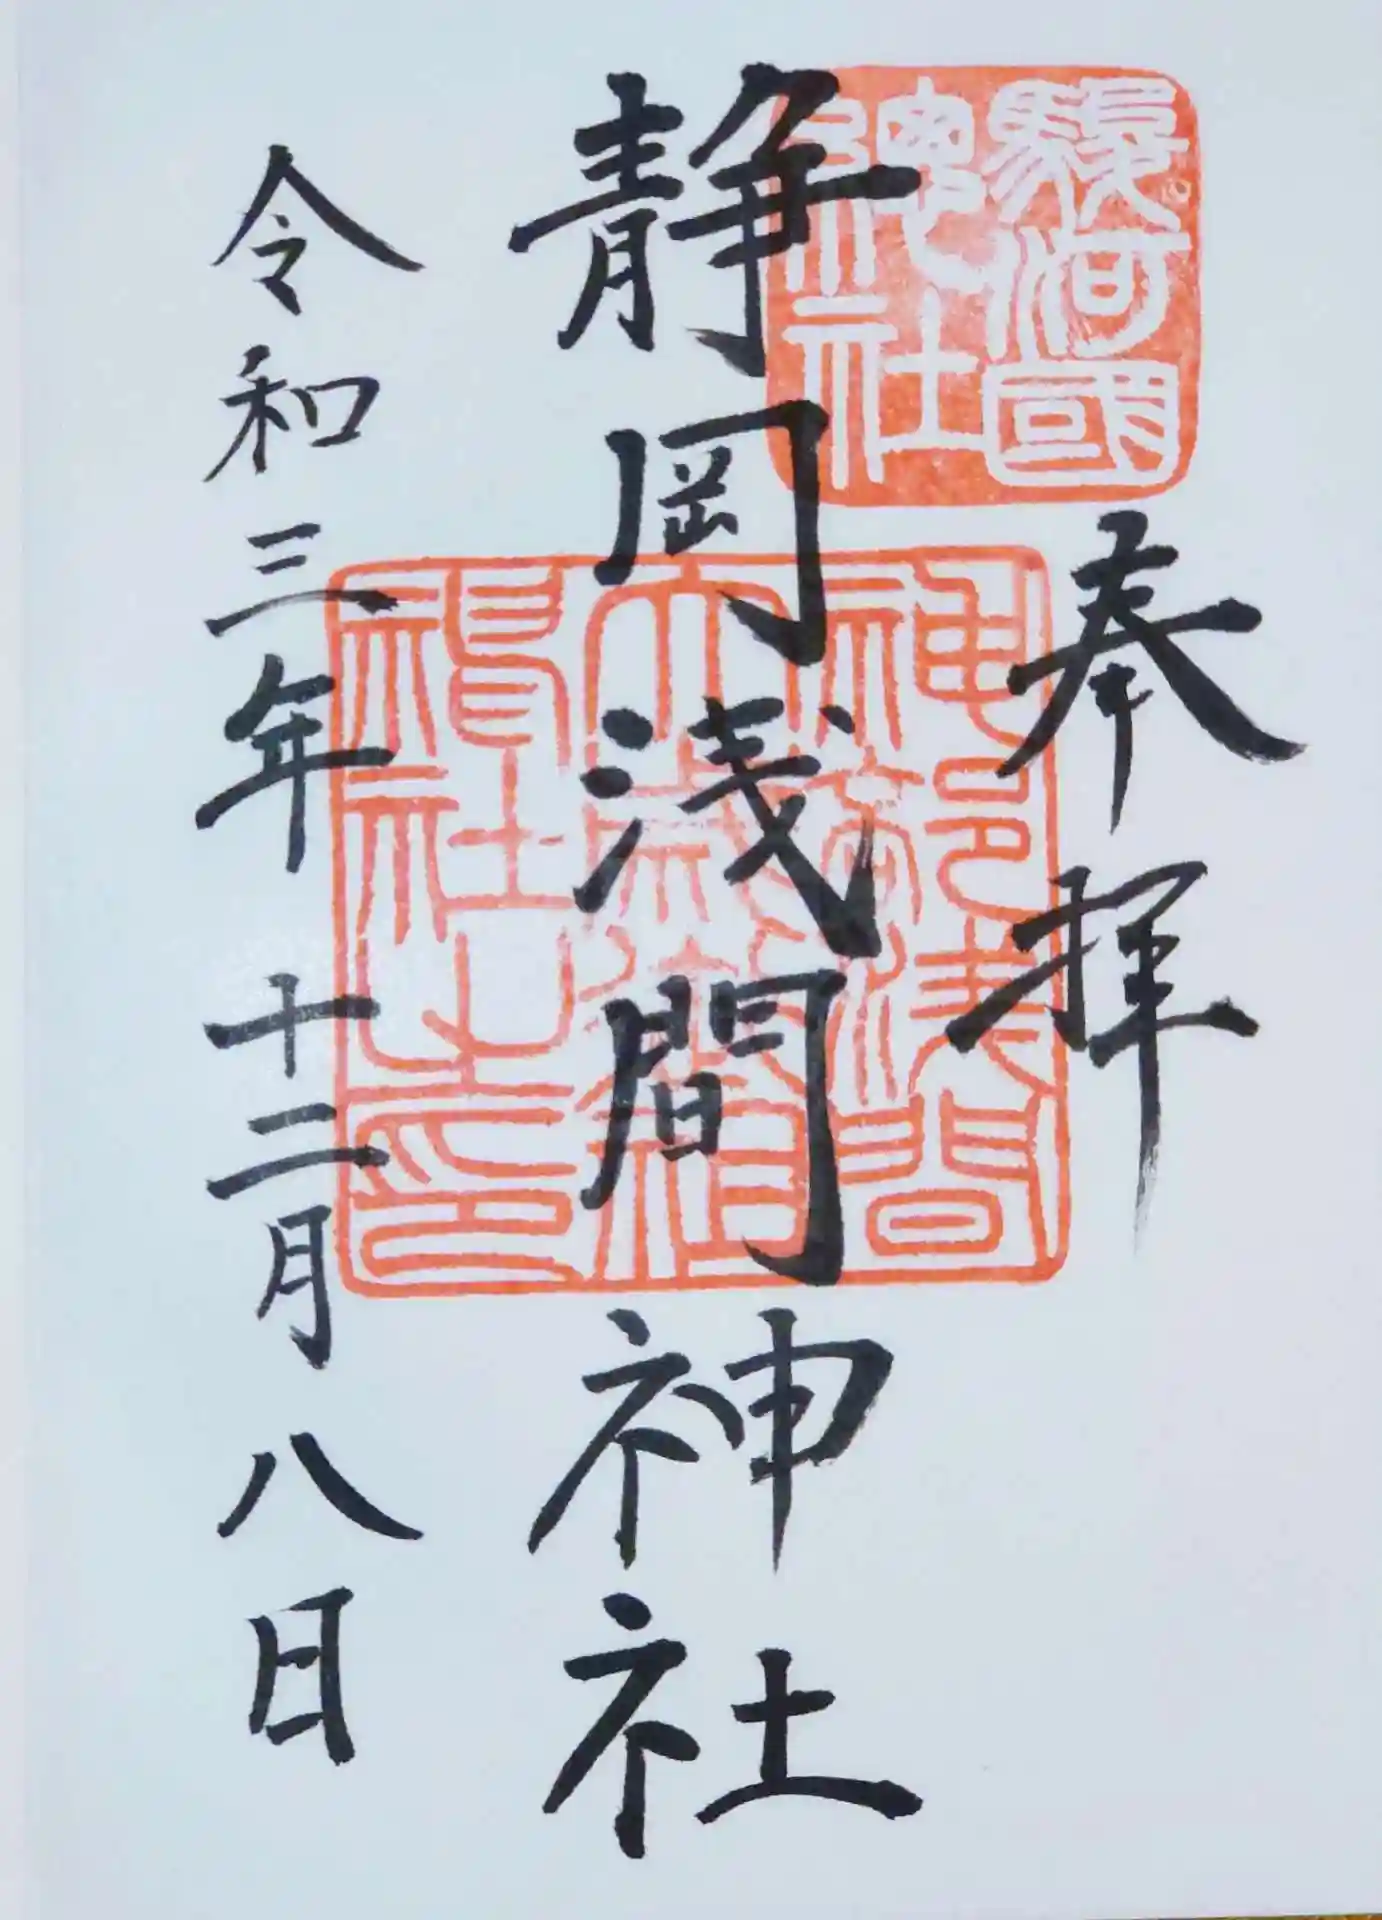 奉拝
駿河國
總社
静岡浅間神社
神部浅間
大歳御祖
神社之印
令和三年 十二月 八日